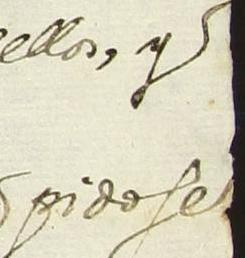 ellos, y
pido se